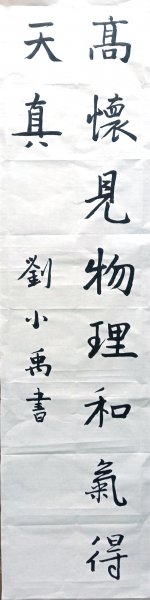 高懷見物理和氣得
天真
劉小禹書